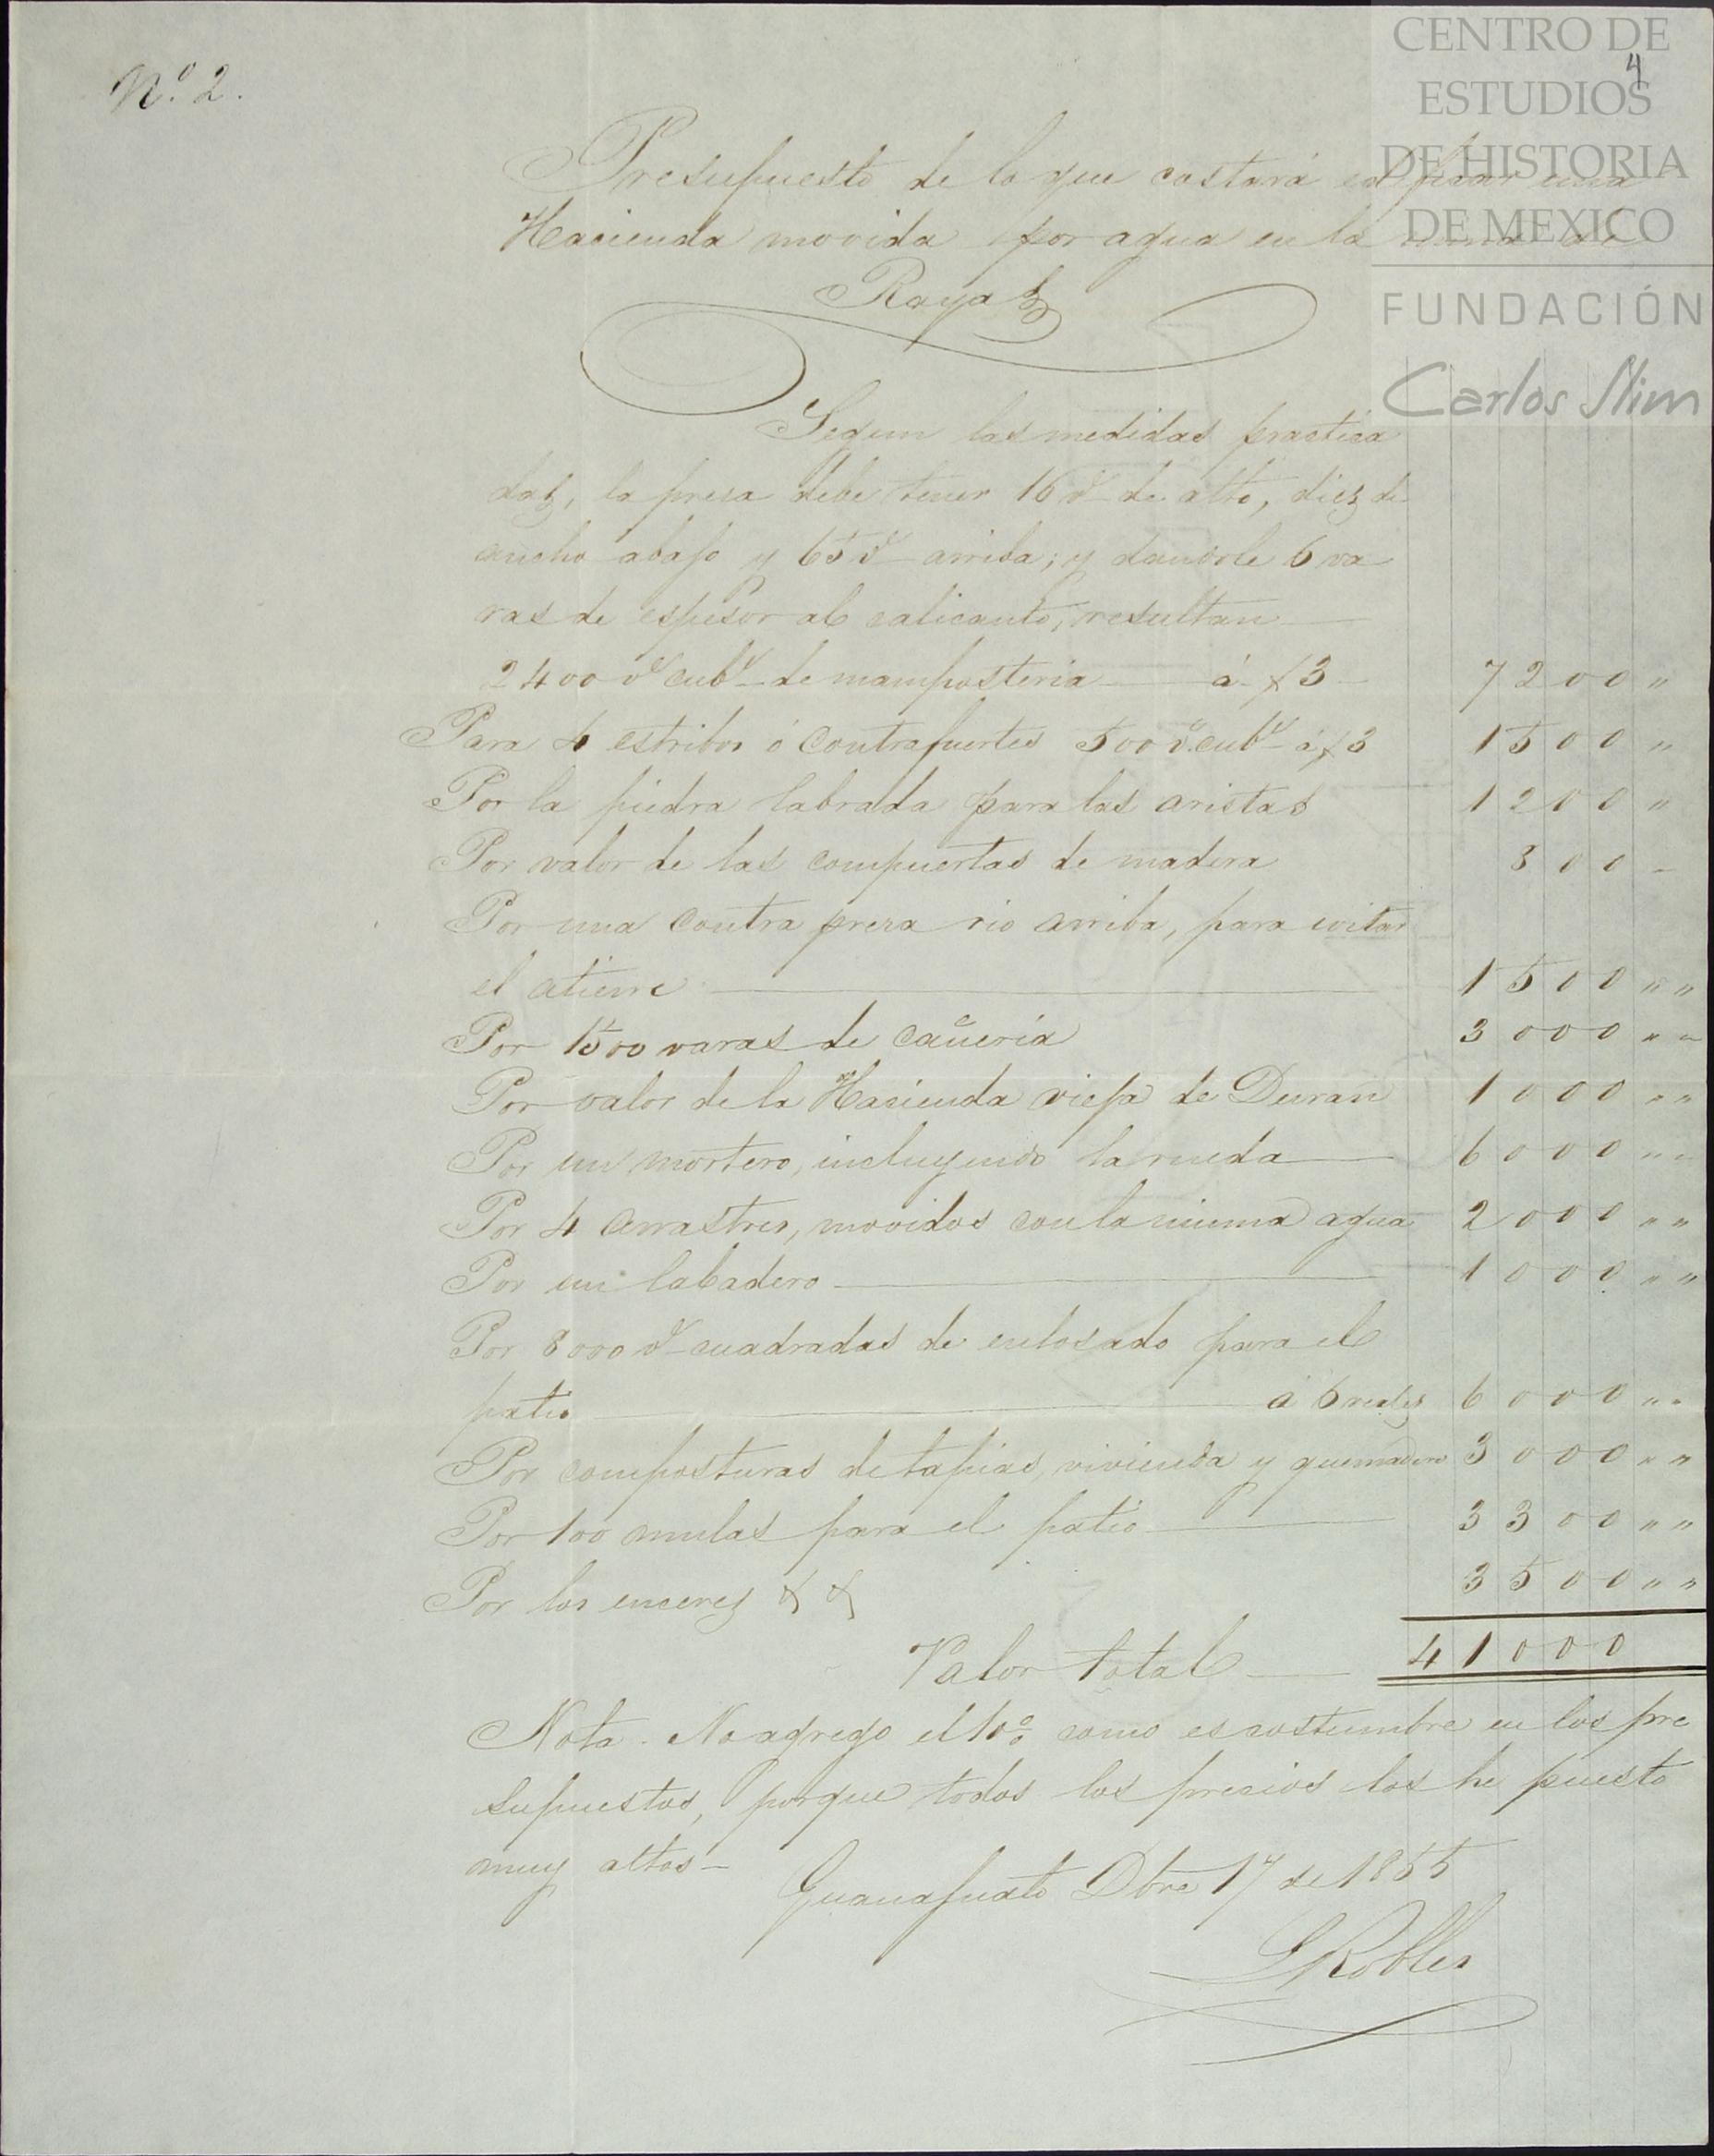 Nº. 2.
4
CENTRO DE
ESTUDIOS
DE HISTORIA
DE MEXICO
FUNDACIÓN
Carlos Slim
Presupuesto de lo que costará edificar una
Hacienda movida por agua en la mina de
Rayas
Segun las medidas practica
das, la presa debe tener 16 vs de alto, diez de
ancho abajo y 65 vs arriba; y dandole 6 va
ras de espesor al calicanto, resultan
2400 vs cubs de mamposteria á $ 3 7200 "
Para 4 estribos ó contrafuertes 500 vs. cubs á $ 3 1500 "
Por la piedra labrada para las aristas 1200 "
Por valor de las compuertas de madera 300 -
Por una contra presa rio arriba, para evitar
el atierre 1500 " "
Por 1500 varas de cañeria 3000 " "
Por valor de la Hacienda vieja de Duran 1000 " "
Por un mortero, incluyendo la rueda 6000 " "
Por 4 arrastres, movidos con la misma agua 2000 " "
Por un labadero 1000 " "
Por 8000 vs cuadradas de enlosado para el
patio á 6 reales 6000 " "
Por composturas de tapias, vivienda y quemadero 3000 " "
Por 100 mulas para el patio 3300 " "
Por los enceres & & 3500 " "
Valor total 41000
Nota. No agrego el 10 % como es costumbre en los pre
supuestos, porque todos los precios los he puesto
muy altos -
Guanajuato Dbre 17 de 1855
Robles